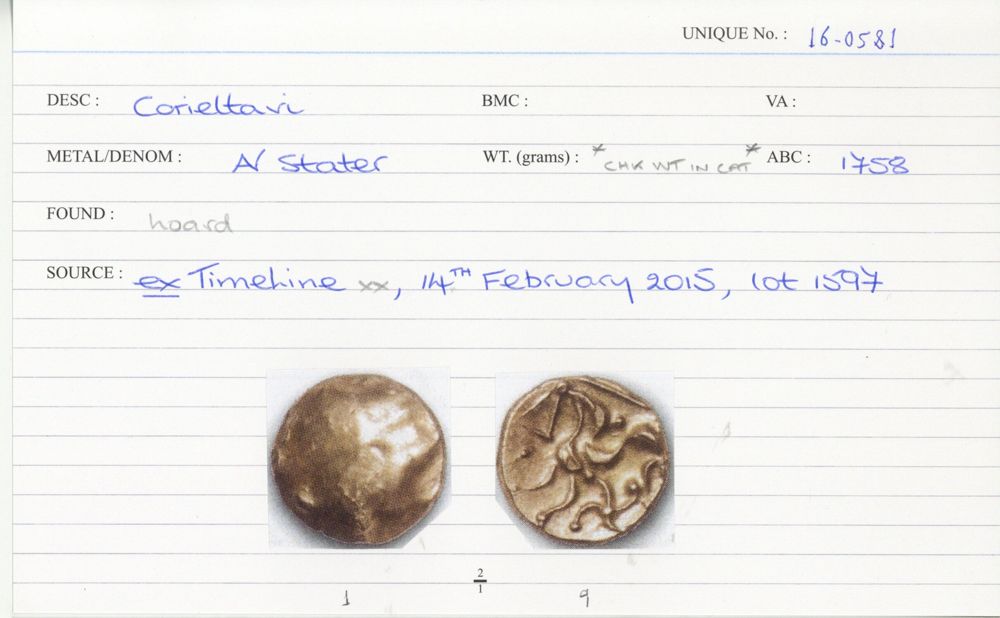 UNIQUE No. : 16-0581
DESC : Corieltavi BMC : VA :
METAL/DENOM : A/ Stater WT. (grams) : *CHK WT IN CAT* ABC : 1758
FOUND : hoard
SOURCE : ex Timeline xx, 14TH February 2015, lot 1597
2/1
1 9